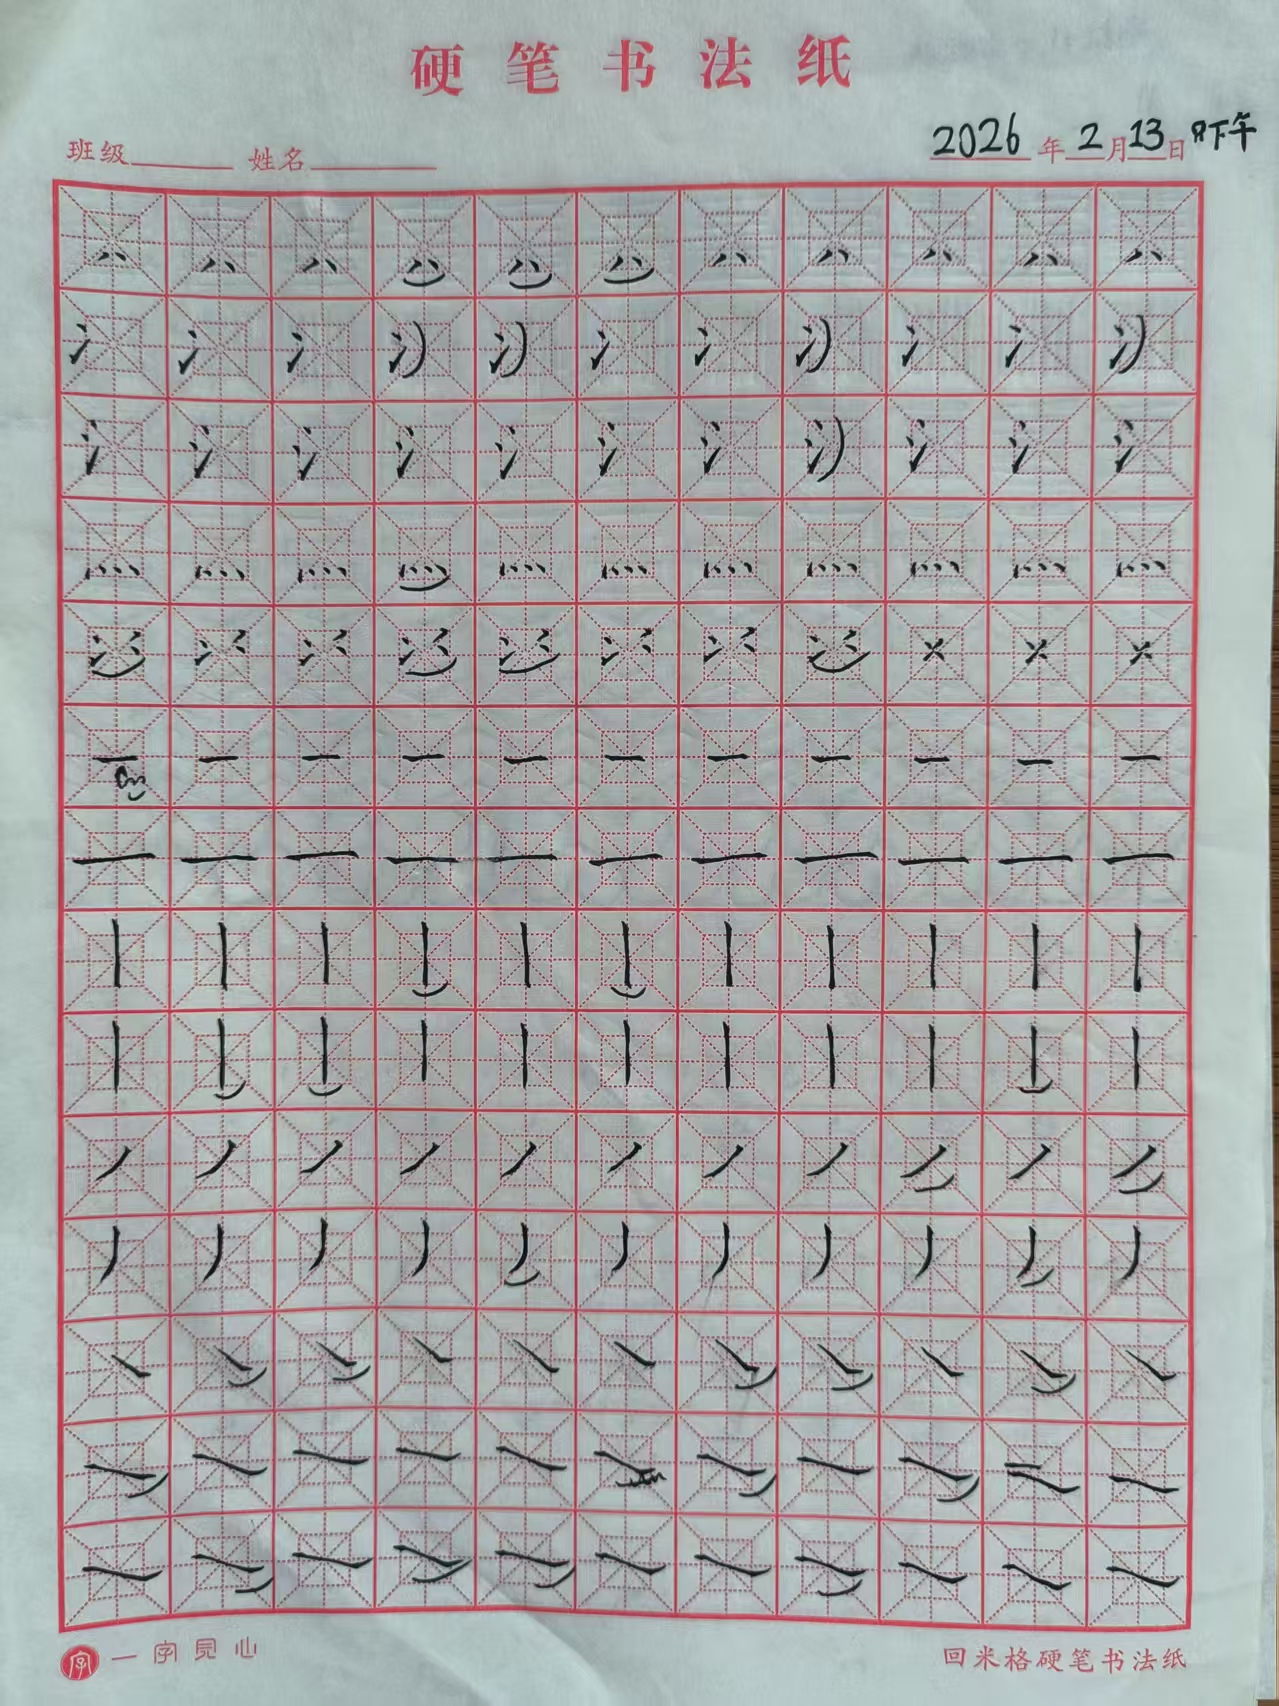 硬笔书法纸
班级 姓名 2026年2月13日下午
一字见心 回米格硬笔书法纸